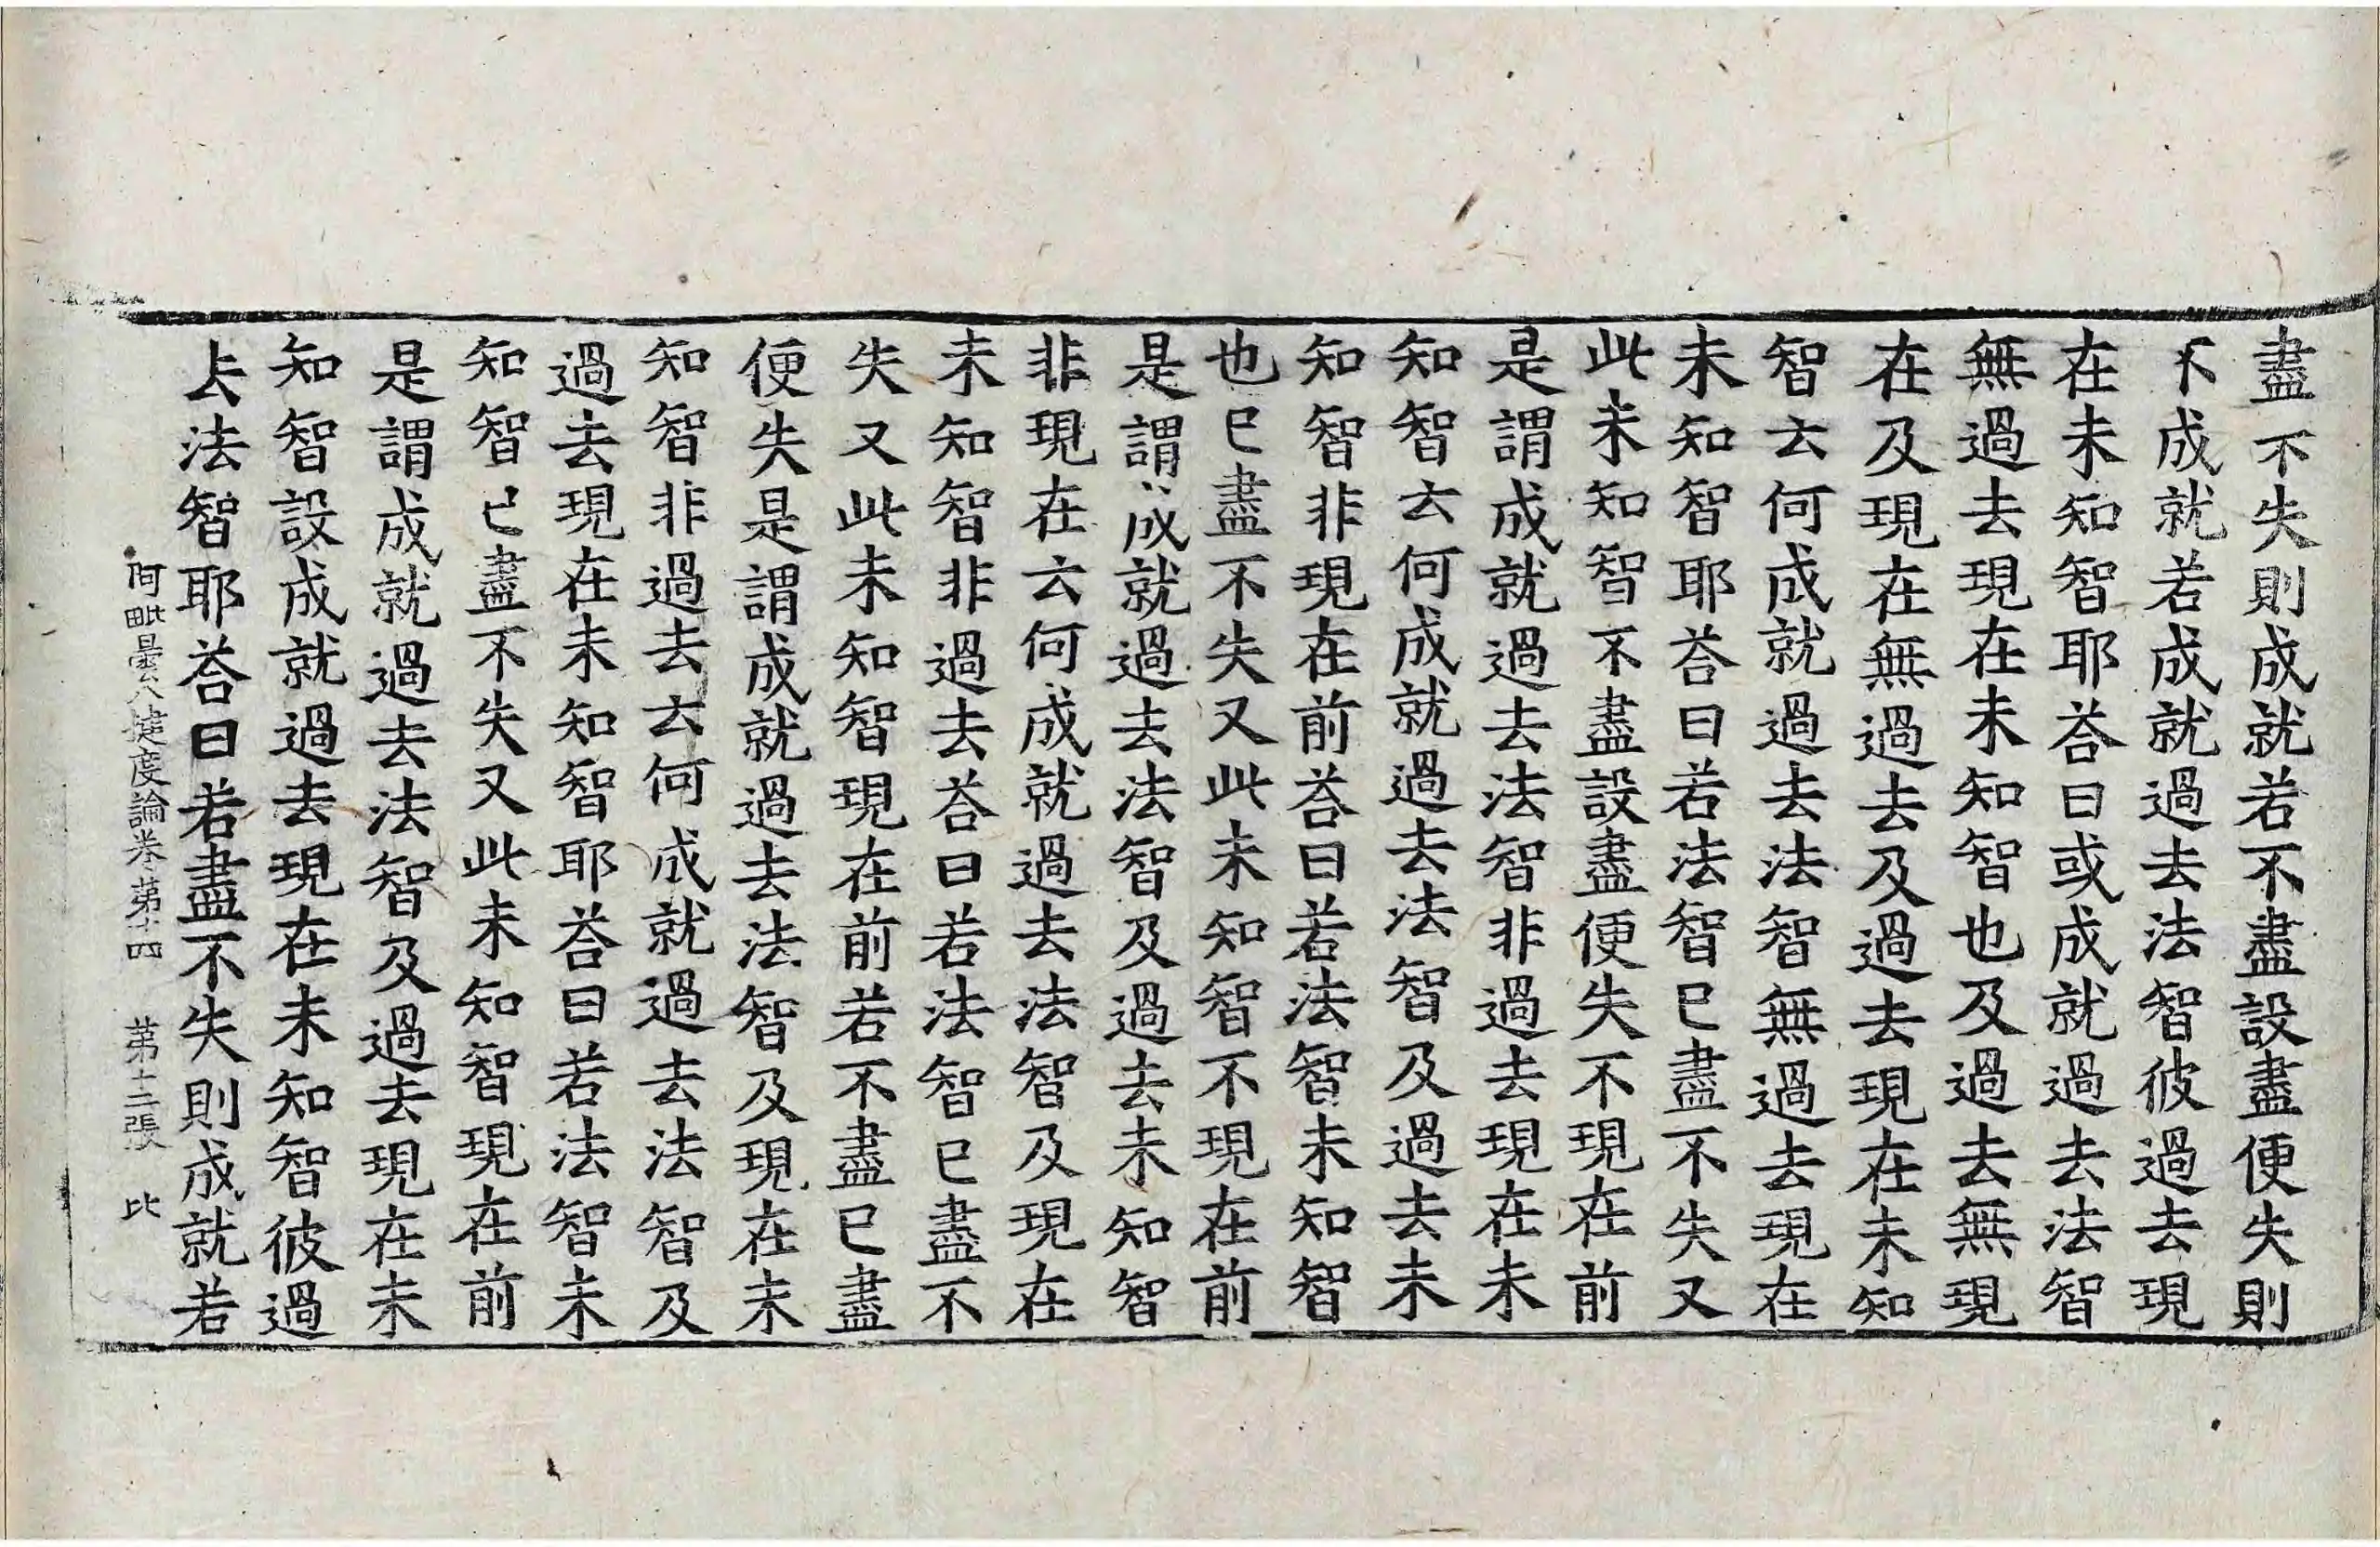 盡不失則成就若不盡設盡便失則
不成就若成就過去法智彼過去現
在未知智耶荅曰或成就過去法智
無過去現在未知智也及過去無現
在及現在無過去及過去現在未知
智云何成就過去法智無過去現在
未知智耶荅曰若法智已盡不失又
此未知智不盡設盡便失不現在前
是謂成就過去法智非過去現在未
知智云何成就過去法智及過去未
知智非現在前荅曰若法智未知智
也已盡不失又此未知智不現在前
是謂成就過去法智及過去未知智
非現在云何成就過去法智及現在
未知智非過去荅曰若法智已盡不
失又此未知智現在前若不盡已盡
便失是謂成就過去法智及現在未
知智非過去云何成就過去法智及
過去現在未知智耶荅曰若法智未
知智已盡不失又此未知智現在前
是謂成就過去法智及過去現在未
知智設成就過去現在未知智彼過
去法智耶荅曰若盡不失則成就若
阿毗曇八揵度論卷苐十四 苐十二張 比